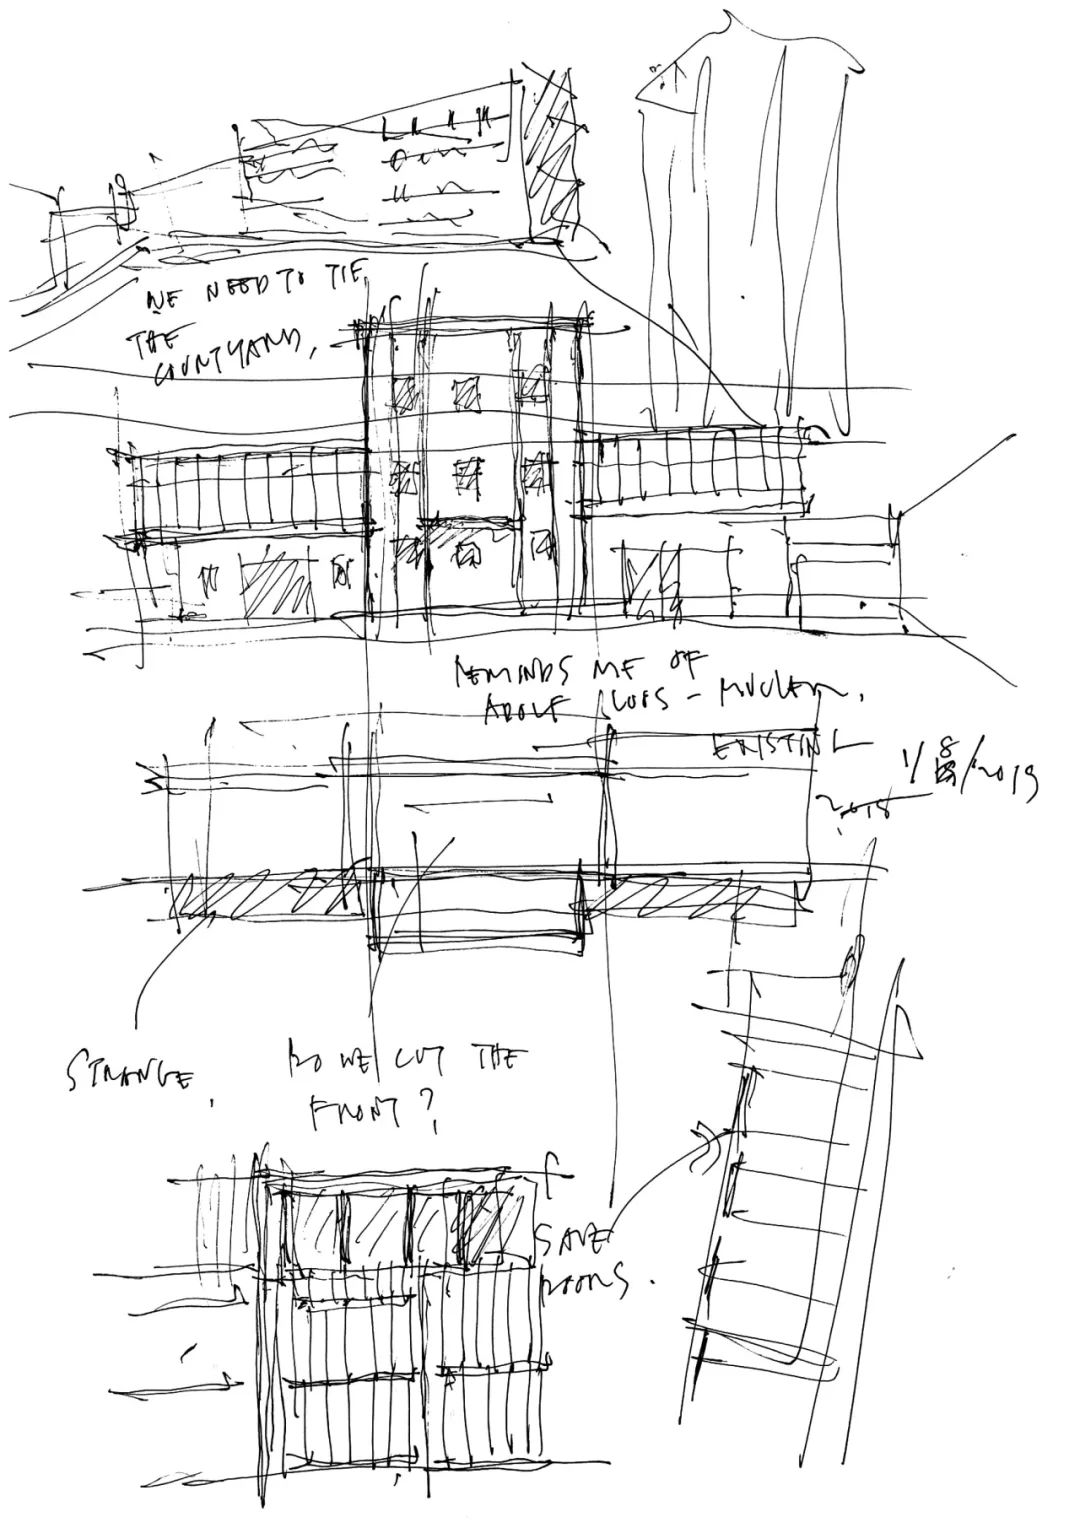 WE NEED TO TIE
THE
COURTYARD,
REMINDS ME OF
ADOLF LOOS -
EXISTING
1/8/2019
2018
STRANGE.
DO WE CUT THE
FRONT?
SAVE
DOORS.